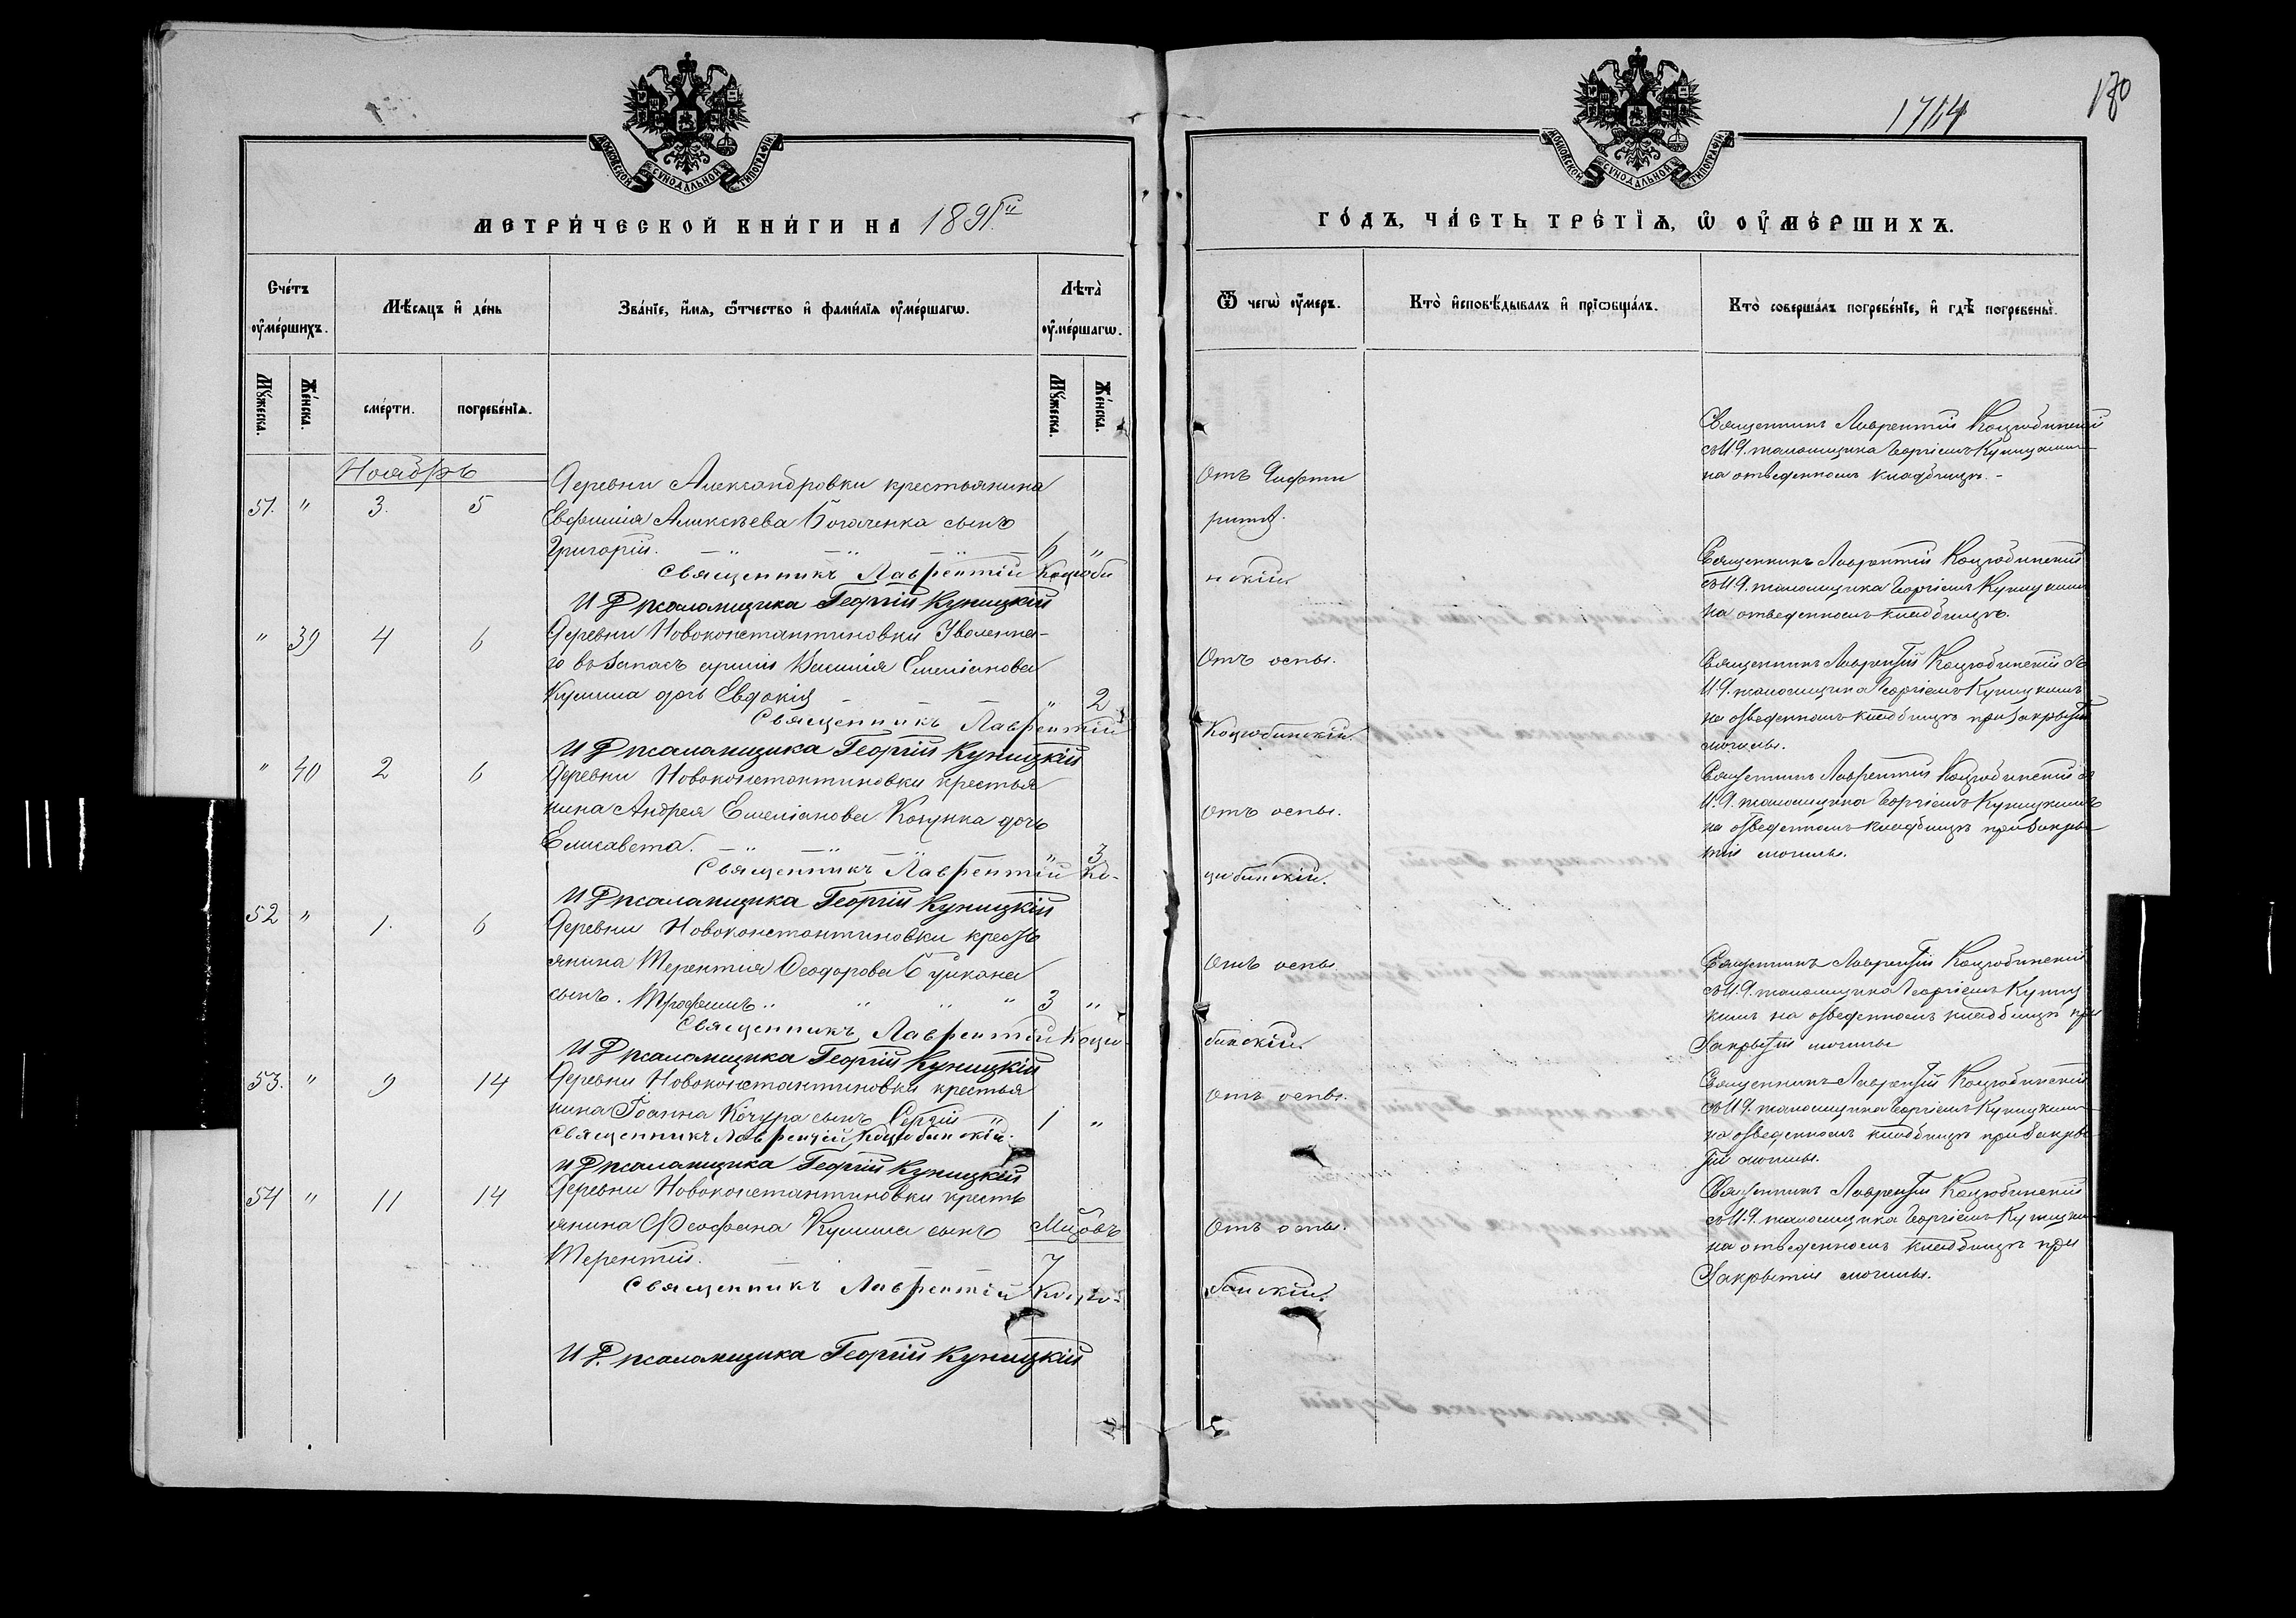 МОСКОВСКОЙ СУНОДАЛЬНОЙ ТИПОГРАФІИ
МЕТРИ́ЧЕСКОЙ КНИ́ГИ НА 1891й
Счéтъ ѹ҆мéршихъ.
Мѣ́сяцъ и҆ дéнь
Звáнїе, и҆́мя, ѻ҆́тчество и҆ фами́лїя ѹ҆мéршагѡ.
Лѣтà ѹ҆мéршагѡ.
Мꙋ́жеска.
Жéнска.
смéрти.
погребéнїя.
Мꙋ́жеска.
Жéнска.
Ноябрь
51. " 3. 5
Деревни Александровки крестьянина
Евфимія Алексѣева Богаченка сынъ
Григорій. 6 "
Священникъ Лаврентій Коцюби
И Д псаломщика Георгій Куницкій
" 39 4 6
Деревни Новоконстантиновки Уволенна-
го въ запасъ арміи Василія Емеліанова
Кулиша дочь Евдокія " 2
Священникъ Лаврентій
И Д псаломщика Георгій Куницкій
" 40 2 6
Деревни Новоконстантиновки крестья
нина Андрея Емеліанова дочь
Елисавета. " 3
Священникъ Лаврентій Ко-
И Д псаломщика Георгій Куницкій
52 " 1. 6
Деревни Новоконстантиновки кресть
янина Терентія Ѳеодорова
сынъ. Трофимъ " 3 "
Священникъ Лаврентій Коцю
И Д псаломщика Георгій Куницкій
53. " 9 14
Деревни Новоконстантиновки крестья
нина Іоанна Кочура сынъ Сергій " 1 "
Священникъ Лаврентій Коцюбинскій.
И Д псаломщика Георгій Куницкій
54 " 11 14
Деревни Новоконстантиновки кресть
янина Феофана Кулиша сынъ Мцовъ
Терентій. 7
Священникъ Лаврентій Коцю-
И Д. псаломщика Георгій Куницкій
1714
180
МОСКОВСКОЙ СУНОДАЛЬНОЙ ТИПОГРАФІИ
ГО́ДЪ, ЧÁСТЬ ТРÉТЇЯ, Ѡ҆ ОУ҆МÉРШИХЪ.
Ѿ чегѡ̀ ѹ҆́меръ.
Ктò и҆сповѣ́дывалъ и҆ прїѡбщáлъ.
Ктò совершáлъ погребéнїе, и҆ гдѣ̀ погребены̀.
Отъ Дифте
рита.
нскій
Священникъ Лаврентій Коцюбинскій
съ И. Д. псаломщика Георгіемъ Куницкимъ
на отведенномъ кладбищѣ.-
Отъ оспы.
Коцюбинскій
Священникъ Лаврентій Коцюбинскій
съ И. Д. псаломщика Георгіемъ Куницкимъ
на отведенномъ кладбищѣ.
Отъ оспы.
цюбинскій.
Священникъ Лаврентій Коцюбинскій съ
И. Д. псаломщика Георгіемъ Куницкимъ
на отведенномъ кладбищѣ при закрытіи
могилы.
Отъ оспы
бинскій.
Священникъ Лаврентій Коцюбинскій съ
И. Д. псаломщика Георгіемъ Куницкимъ
на отведенномъ кладбищѣ при закры
тіи могилы.
Отъ оспы.
Священникъ Лаврентій Коцюбинскій
съ И. Д. псаломщика Георгіемъ Куниц
кимъ на отведенномъ кладбищѣ при
закрытіи могилы
Отъ оспы.
бинскій.
Священникъ Лаврентій Коцюбинскій
съ И. Д. псаломщика Георгіемъ Куницкимъ
на отведенномъ кладбищѣ при закры
тіи могилы.
Священникъ Лаврентій Коцюбинскій
съ И. Д. псаломщика Георгіемъ Куницким
на отведенномъ кладбищѣ при
закрытіи могилы.